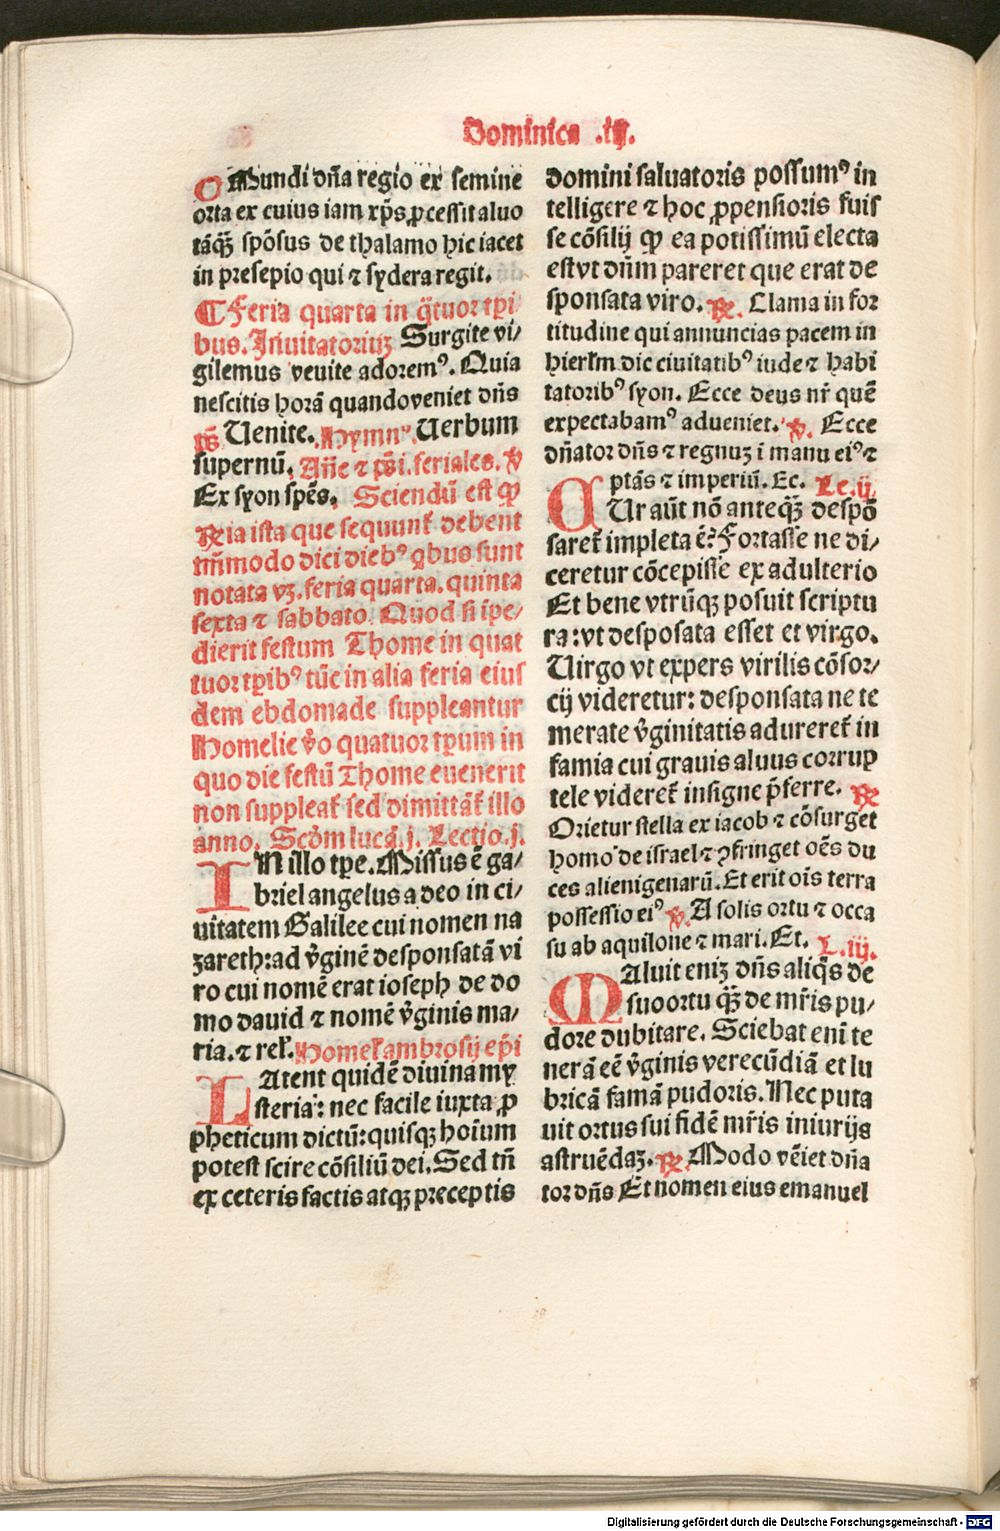 Dominica .iij.
O Mundi dn̄a regio ex semine
orta ex cuius iam xp̄s ꝓcessit aluo
tāq̄ꝫ spōsus de thalamo hic iacet
in presepio qui ⁊ sydera regit.
¶ Feria quarta in q̄tuor tꝑi
bus. Inuitatoriuꝫ Surgite vi/
gilemus venite adoremꝰ. Quia
nescitis horā quando veniet dn̄s
p̄s̄ Uenite. Hymnꝰ. Uerbum
supernū. Añe ⁊ p̄s̄i. feriales. ℣
Ex syon spēs. Sciendū est ꝙ
℟ia ista que sequunt᷑ debent
tm̄modo dici diebꝰ qͥbus sunt
notata vꝫ. feria quarta. quinta
sexta ⁊ sabbato. Quod si īpe/
dierit festum Thome in quat
tuor tꝑibꝰ tūc in alia feria eius
dem ebdomade suppleantur
Homelie v̄o quatuor tꝑum in
quo die festū Thome euenerit
non suppleat᷑ sed dimittāt᷑ illo
anno. Scd̄m lucā. j. Lectio. j.
IN illo tꝑe. Missus ē ga/
briel angelus a deo in ci/
uitatem Galilee cui nomen na
zareth: ad v̄ginē desponsatā vi
ro cui nomē erat ioseph de do
mo dauid ⁊ nomē v̄ginis ma/
ria. ⁊ rel᷑. Homel᷑ ambrosij ep̄i
LAtent quidē diuina my
steria: nec facile iuxta ꝓ
pheticum dictū: quisqꝫ hoīum
potest scire cōsiliū dei. Sed tn̄
ex ceteris factis atqꝫ preceptis
domini saluatoris possumꝰ in
telligere ⁊ hoc ꝓpensioris fuis
se cōsilij ꝙ ea potissimū electa
est vt dn̄m pareret que erat de
sponsata viro. ℟. Clama in for
titudine qui annuncias pacem in
hierl̄m dic ciuitatibꝰ iude ⁊ habi
tatoribꝰ syon. Ecce deus nr̄ quē
expectabamꝰ adueniet. ℣. Ecce
dn̄ator dn̄s ⁊ regnuꝫ ī manu eiꝰ ⁊
ptās ⁊ imperiū. Ec. Le. ij
CUr aūt nō anteq̄ꝫ despō
saret᷑ impleta ē? Fortasse ne di/
ceretur cōcepisse ex adulterio
Et bene vtrūqꝫ posuit scriptu
ra: vt desposata esset et virgo.
Uirgo vt expers virilis cōsor/
cij videretur: desponsata ne te
merate v̄ginitatis adureret᷑ in
famia cui grauis aluus corrup
tele videret᷑ insigne p̄ferre. ℟
Orietur stella ex iacob ⁊ cōsurget
homo de israel ⁊ ꝯfringet oēs du
ces alienigenarū. Et erit oīs terra
possessio eiꝰ ℣. A solis ortu ⁊ occa
su ab aquilone ⁊ mari. Et. L. iij.
MAluit eniꝫ dn̄s aliqͥs de
suo ortu q̄ꝫ de mr̄is pu/
dore dubitare. Sciebat enī te
nerā eē v̄ginis verecūdiā et lu
bricā famā pudoris. Nec puta
uit ortus sui fidē mr̄is iniurijs
astruēdaꝫ. ℟. Modo vēiet dn̄a
tor dn̄s Et nomen eius emanuel
Digitalisierung gefördert durch die Deutsche Forschungsgemeinschaft - DFG